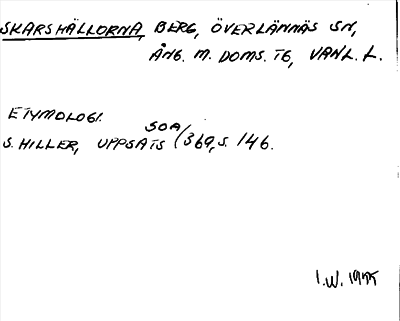 SKARSHÄLLORNA, BERG, ÖVERLÄNNÄS SN,
ÅNG. M. DOMS. TG, VANL. L.
ETYMOLOGI.
SOA/
S. HILLER, UPPSATS 369, S. 146.
I.W.